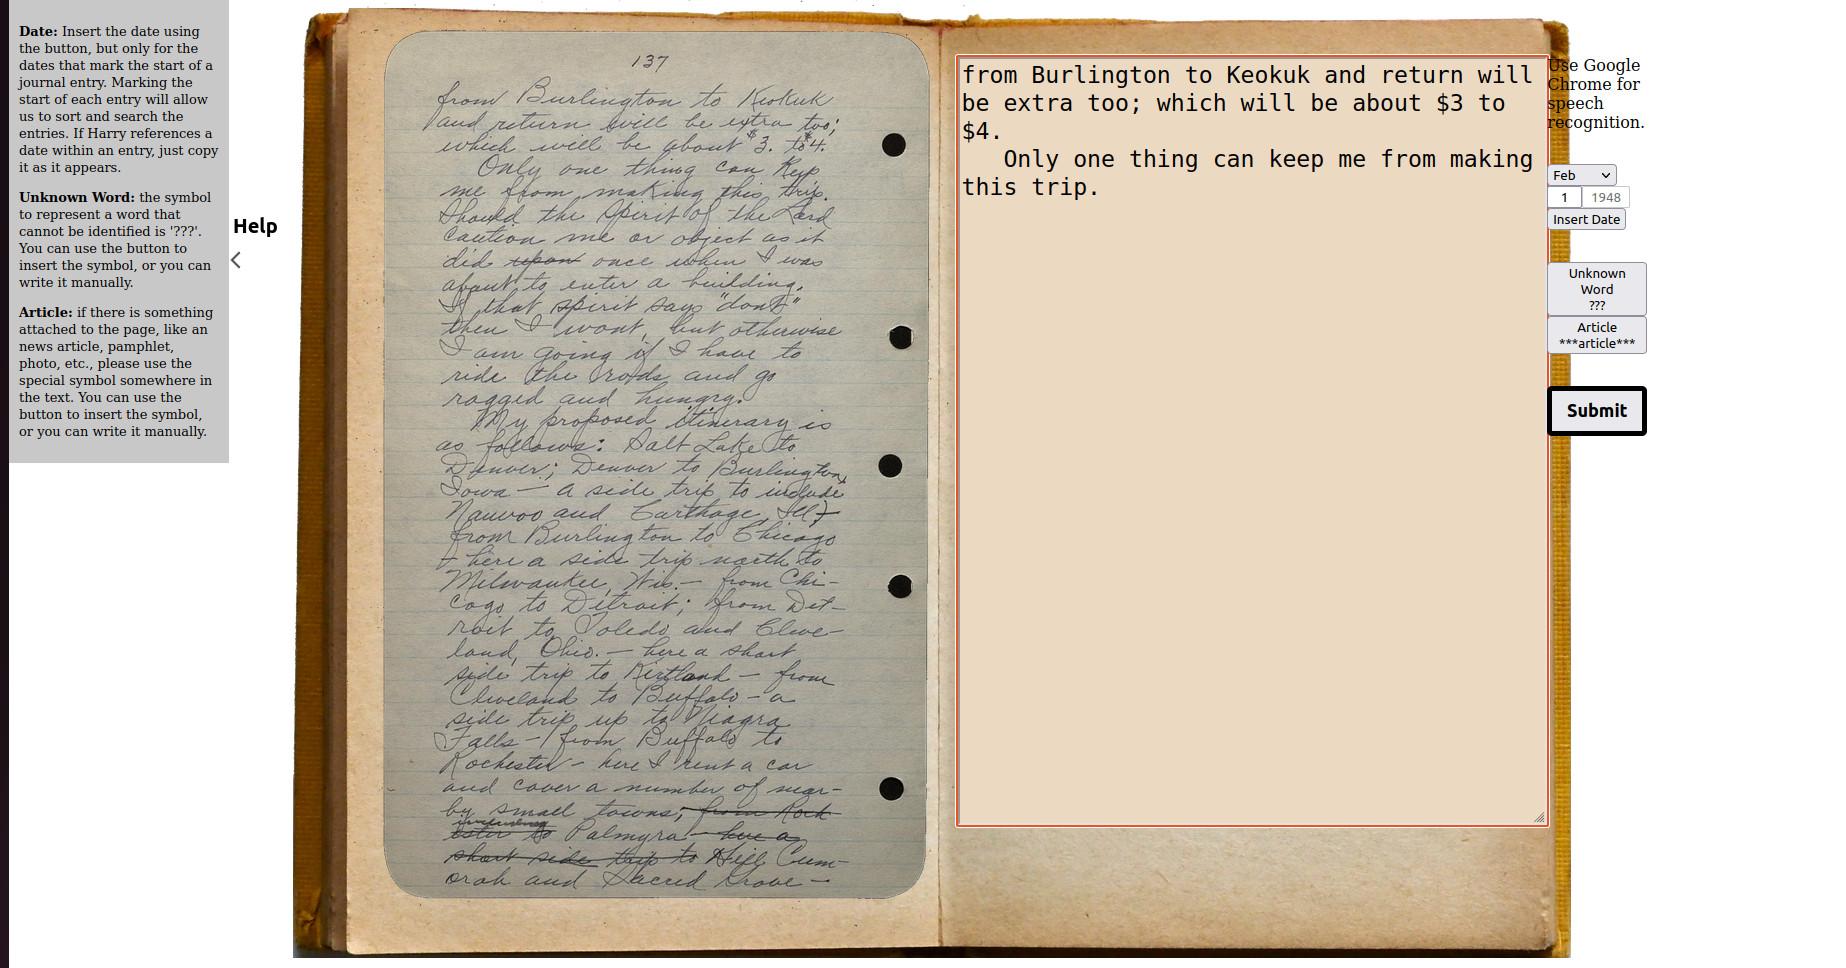 Date: Insert the date using
the button, but only for the
dates that mark the start of a
journal entry. Marking the
start of each entry will allow
us to sort and search the
entries. If Harry references a
date within an entry, just copy
it as it appears.
Unknown Word: the symbol
to represent a word that
cannot be identified is '???'.
You can use the button to
insert the symbol, or you can
write it manually.
Article: if there is something
attached to the page, like an
news article, pamphlet,
photo, etc., please use the
special symbol somewhere in
the text. You can use the
button to insert the symbol,
or you can write it manually.
Help
137
from Burlington to Keokuk
and return will be extra too;
which will be about $3. to $4.
Only one thing can keep
me from making this trip.
Should the Spirit of the Lord
caution me or object as it
did upon once when I was
about to enter a building.
If that spirit says "dont"
then I wont, but otherwise
I am going if I have to
ride the rods and go
ragged and hungry.
My proposed itinerary is
as follows: Salt Lake to
Denver; Denver to Burlington,
Iowa — a side trip to include
Nauvoo and Carthage, Ill,—
from Burlington to Chicago
– here a side trip north to
Milwaukee, Wis. — from Chi-
cago to Detroit; from Det-
roit to Toledo and Cleve-
land, Ohio. — here a short
side trip to Kirtland — from
Cleveland to Buffalo – a
side trip up to Niagra
Falls – from Buffalo to
Rochester – here I rent a car
and cover a number of near-
by small towns; from Roch
including
ester to Palmyra – here a
short side trip to Hill Cum-
orah and Sacred Grove —
from Burlington to Keokuk and return will
be extra too; which will be about $3 to
$4.
Only one thing can keep me from making
this trip.
Use Google
Chrome for
speech
recognition.
Feb
1 1948
Insert Date
Unknown
Word
???
Article
***article***
Submit